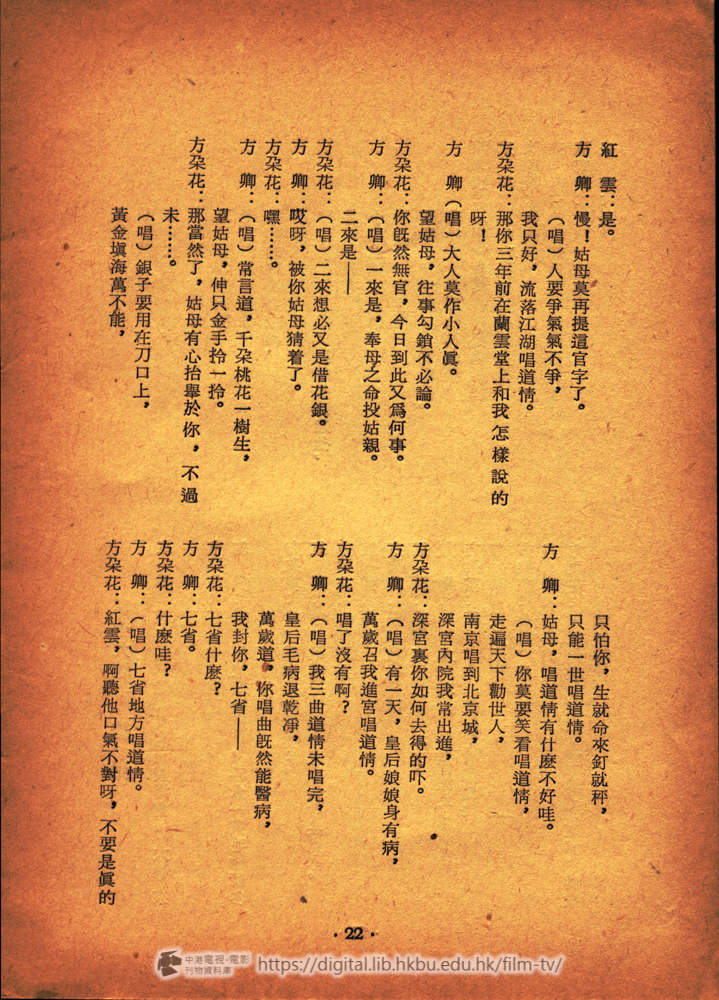 紅　雲：是。
方　卿：慢！姑母莫再提這官字了。
（唱）人要爭氣氣不爭，
我只好，流落江湖唱道情。
方朶花：那你三年前在蘭雲堂上和我怎樣說的
呀！
方　卿（唱）大人莫作小人眞。
望姑母，往事勾鎖不必論。
方朶花：你旣然無官，今日到此又爲何事。
方　卿：（唱）一來是，奉母之命投姑親。
二來是——
方朶花：（唱）二來想必又是借花銀。
方　卿：哎呀，被你姑母猜着了。
方朶花：嘿……。
方　卿：（唱）常言道，千朶桃花一樹生，
望姑母，伸只金手拎一拎。
方朶花：那當然了，姑母有心抬舉於你，不過
未……。
（唱）銀子要用在刀口上，
黃金塡海萬不能，
只怕你，生就命來釘就秤，
只能一世唱道情。
方　卿：姑母，唱道情有什麼不好哇。
（唱）你莫要笑看唱道情，
走遍天下勸世人，
南京唱到北京城，
深宮內院我常出進，
方朶花：深宮裏你如何去得的吓。
方　卿：（唱）有一天，皇后娘娘身有病，
萬歲召我進宮唱道情。
方朶花：唱了沒有啊？
方　卿：（唱）我三曲道情未唱完，
皇后毛病退乾凈，
萬歲道，你唱曲旣然能醫病，
我封你，七省——
方朶花：七省什麼？
方　卿：七省。
方朶花：什麼哇？
方　卿：（唱）七省地方唱道情。
方朶花：紅雲，啊聽他口氣不對呀，不要是眞的
·22·
中港電視·電影
刊物資料庫
https://digital.lib.hkbu.edu.hk/film-tv/